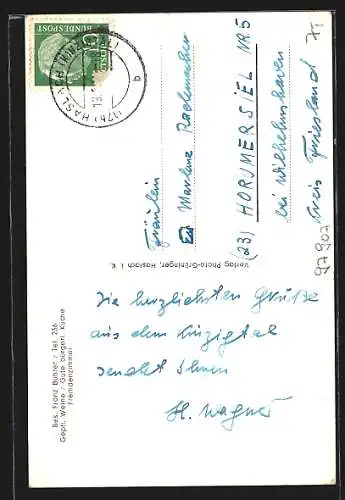 DEUTSCHE
BUNDESPOST
(17b) HASLACH (KINZIGTAL)
b
Fräulein
Marlene
(23) HORUMERSIEL NR. 5
bei Wilhelmshaven
Kreis Friesland
97907
Verlag Photo-Grüninger, Haslach i. K.
Die herzlichsten Grüße
aus dem Kinzigtal
sendet Ihnen
H. Wagner
Bes. Franz Bühler / Tel. 256
Gepfl. Weine / Gute bürgerl. Küche
Fremdenzimmer